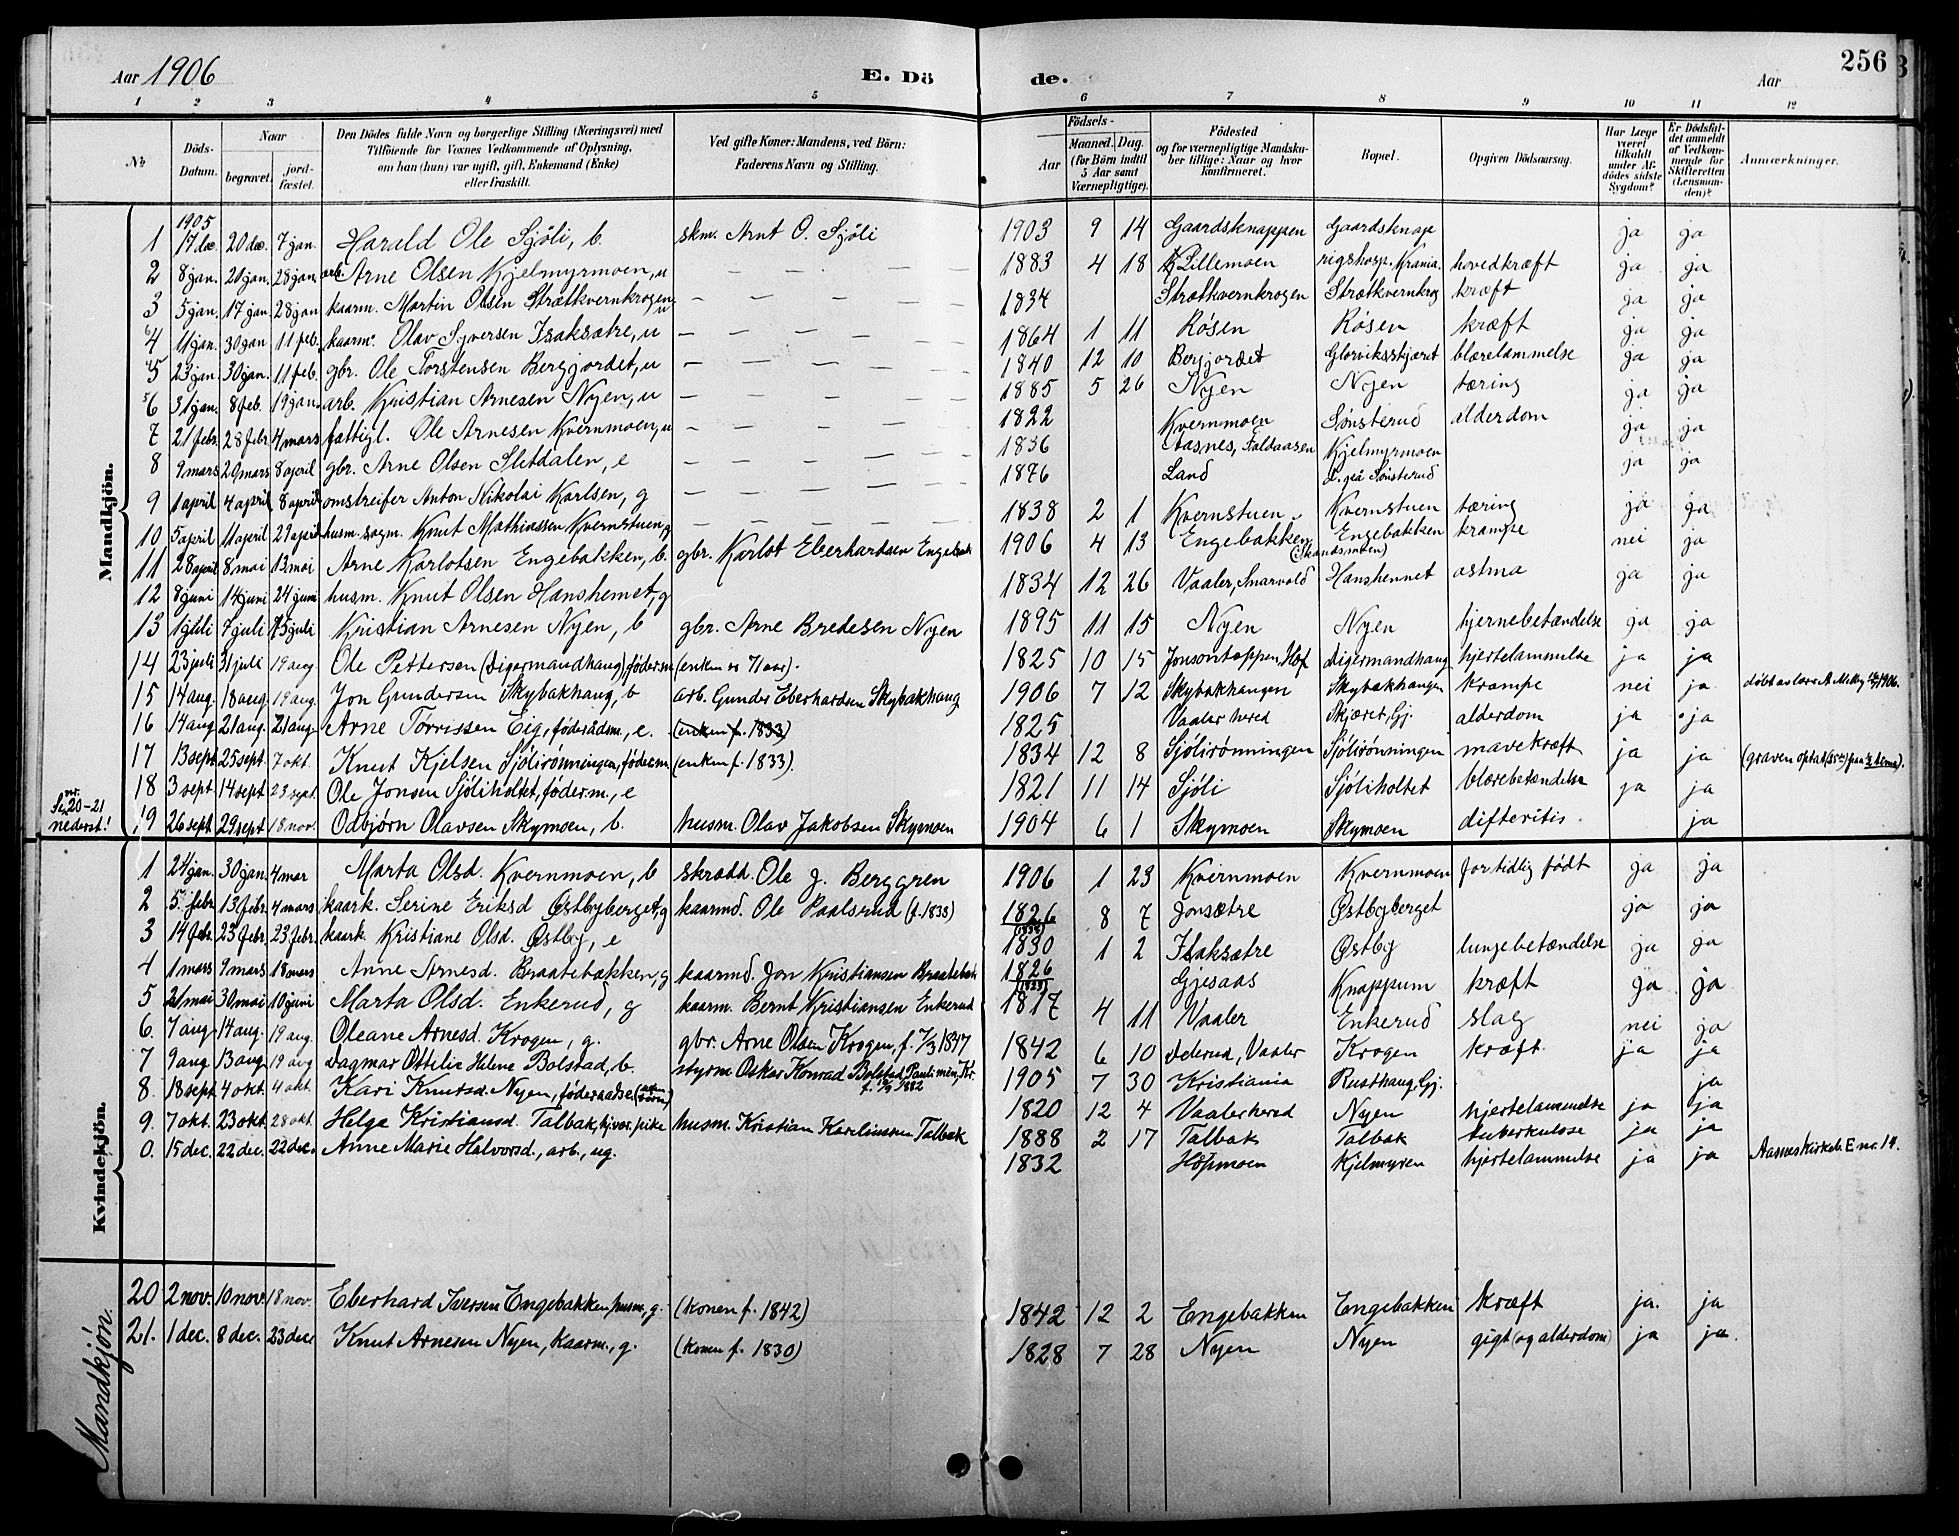 256
Aar 1906 E. Dö de. Aar
1 2 3 4 5 6 7 8 9 10 11 12
No. Döds-Datum. Naar begravet. jordfæstet. Den Dödes fulde Navn og borgerlige Stilling (Næringsvei) med Tilföiende for Voxnes Vedkommende af Oplysning, om han (hun) var ugift, gift, Enkemand (Enke) eller fraskilt. Ved gifte Koner: Mandens, ved Börn: Faderens Navn og Stilling. Födsels- Aar Maaned. Dag. (for Börn indtil 5 Aar samt Værnepligtige). Födested og for værnepligtige Mandskaber tillige: Naar og hvor konfirmeret. Bopæl. Opgiven Dödsaarsag. Har Læge været tilkaldt under Afdödes sidste Sygdom? Er Dödsfaldet anmeldt af Vedkommende for Skifteretten (Lensmanden)? Anmærkninger.
Mandkjön.
1905
1 17 dec. 20 dec. 7 jan. Harald Ole Sjöli, b. skm. Arnt O. Sjöli 1903 9 14 Gaardsknappen Gaardsknap ja ja
2 8 jan. 21 jan. 28 jan. arb. Arne Olsen Kjelmyrmoen, u — — — — — 1883 4 18 Lillemoen rigshosp. Krania. hovedkræft ja ja
3 5 jan. 17 jan. 28 jan kaarm. Martin Olsen Strætkvernkrogen, u — — — — — 1834 Strætkvernkrogen Strætkvernkrog kræft ja ja
4 11 jan. 30 jan 11 feb. kaarm. Olav Syversen Isaksætre, u — — — — — 1864 1 11 Røsen Røsen kræft ja ja
5 23 jan. 30 jan. 11 feb. gbr. Ole Torstensen Bergjordet, u — — — — — 1840 12 10 Bergjordet Glorviksskjæret blærelammelse ja ja
6 31 jan. 8 feb. 19 jan. arb. Kristian Arnesen Nyen, u — — — — — 1885 5 26 Nyen Nyen tæring ja ja
7 21 febr. 28 febr. 4 mars fattigl. Ole Arnesen Kvernmoen, u — — — — — 1822 Kvernmoen Sønsterud alderdom ja ja
8 9 mars 20 mars 8 april gbr. Arne Olsen Sletdalen, e — — — — — 1836 Aasnes, Falbaasen Kjelmyrmoen ja ja
9 1 april 4 april 8 april omstreifer Anton Nikolai Karlsen, g — — — — — 1876 Land d. på Sønsterud ja ja
10 5 april 11 april 29 april husm. sagm. Knut Mathiassen Kvernstuen, g — — — — — 1838 2 1 Kvernstuen Kvernstuen tæring ja ja
11 28 april 8 mai 13 mai Arne Karlotsen Engebakken, b. gbr. Karlot Eberhardsen Engebak 1906 4 13 Engebakken Engebakken krampe nei ja
12 8 juni 14 juni 24 juni husm. Knut Olsen Hanshemet, g 1834 12 26 Vaaler, Snarvold Hanshemmet astma ja ja
13 1 juli 7 juli 15 juli Kristian Arnesen Nyen, b gbr. Arne Bredesen Nyen 1895 11 15 Nyen Nyen hjernebetændelse ja ja
14 23 juli 31 juli 19 aug Ole Pettersen (Digermandhaug) föderm. (enkm 71 aar). 1825 10 15 Jonsontoppen, Hof Digermandhaug hjertelammelse ja ja
15 14 aug. 18 aug. 19 aug. Jon Gundersen Skybakhaug, b arb. Gunder Eberhardsen Skybakhaug 1906 7 12 Skybakhaugen Skybakhaugen krampe nei ja døbt av lærer A. Melby 1906.
16 14 aug 21 aug. 21 aug. Arne Tørrissen Eig, föderådsm., e. (enkm f. 1833) 1825 Vaaler hered Skjæret, Gj. alderdom ja ja
17 13 sept 25 sept. 7 okt. Knut Kjelsen Sjölirønningen, föderm. (enkm f. 1833). 1834 12 8 Sjölirønningen Sjölirønningen mavekræft ja ja (graven optat paa ½ tima).
18 3 sept 14 sept 23 sept. Ole Jonsen Sjöliholtet, föderm., e 1821 11 14 Sjöli Sjöliholtet blærebetændelse ja ja
Se nr. 20-21 nederst!
19 26 sept 29 sept 18 nov. Odbjørn Olavsen Skymoen, b. husm. Olav Jakobsen Skymoen 1904 6 1 Skymoen Skymoen difteritis. ja
Kvindekjön.
1 24 jan. 30 jan. 4 mar Marta Olsd. Kvernmoen, b skrædd. Ole J. Berggren 1906 1 23 Kvernmoen Kvernmoen for tidlig født ja ja
2 5 febr 13 febr. 4 mars kaark. Serine Eriksd Østbyberget, g kaarmd. Ole Paalsrud (f. 1838) 1826 8 7 Jonsætre Østbyberget ja ja
3 14 febr. 23 febr. 23 febr. kaark. Kristiane Olsd. Østby, e 1830 1 2 Isaksætre Østby lungebetændelse ja ja
4 1 mars 9 mars 18 mars Anne Arnesd. Braatebakken, g kaarmd. Jon Kristiansen Braatebak 1826 Gjesaas Knappum kræft ja ja
5 21 mai 30 mai 10 juni Marta Olsd. Enkerud, g kaarm. Bernt Kristiansen Enkerud 1817 4 11 Vaaler Enkerud slag nei ja
6. 7 aug. 14 aug. 19 aug. Oleane Arnesd. Krogen, g. gbr. Arne Olsen Krogen, f. 7/3 1847 1842 6 10 Vaaler Krogen kræft ja ja
7 9 aug 13 aug 19 aug Dagmar Ottilie Helene Bolstad, b. styrm. Oskar Konrad Bolstad, Kr. 1882 1905 7 30 Kristiania Rusthaug, Gj. ja
8 18 sept 4 okt. 4 okt. Kari Knutsd. Nyen, föderaadse. 1820 12 4 Vaaler hered Nyen hjertelammelse ja ja
9. 7 okt. 23 okt. 28 okt. Helga Kristiansd. Talbak, hjver. pike husm. Kristian Karelinssen Talbak 1888 2 17 Talbak Talbak tuberkulose ja ja
0. 15 dec. 22 dec. 22 dec. Anne Marie Halvorsd., arb., ug. 1832 Hopmoen Kjelmyren hjertelammelse ja ja Aasnes Kirkeb. E no. 14.
Mandkjön.
20 2 nov. 10 nov. 18 nov. Eberhard Iversen Engebakken, husm., g. (konen f. 1842) 1842 12 2 Engebakken Engebakken kræft ja. ja
21. 1 dec. 8 dec. 23 dec Knut Arnesen Nyen, kaarm., g. (konen f. 1830) 1828 7 28 Nyen Nyen gigt (og alderdom) ja ja.